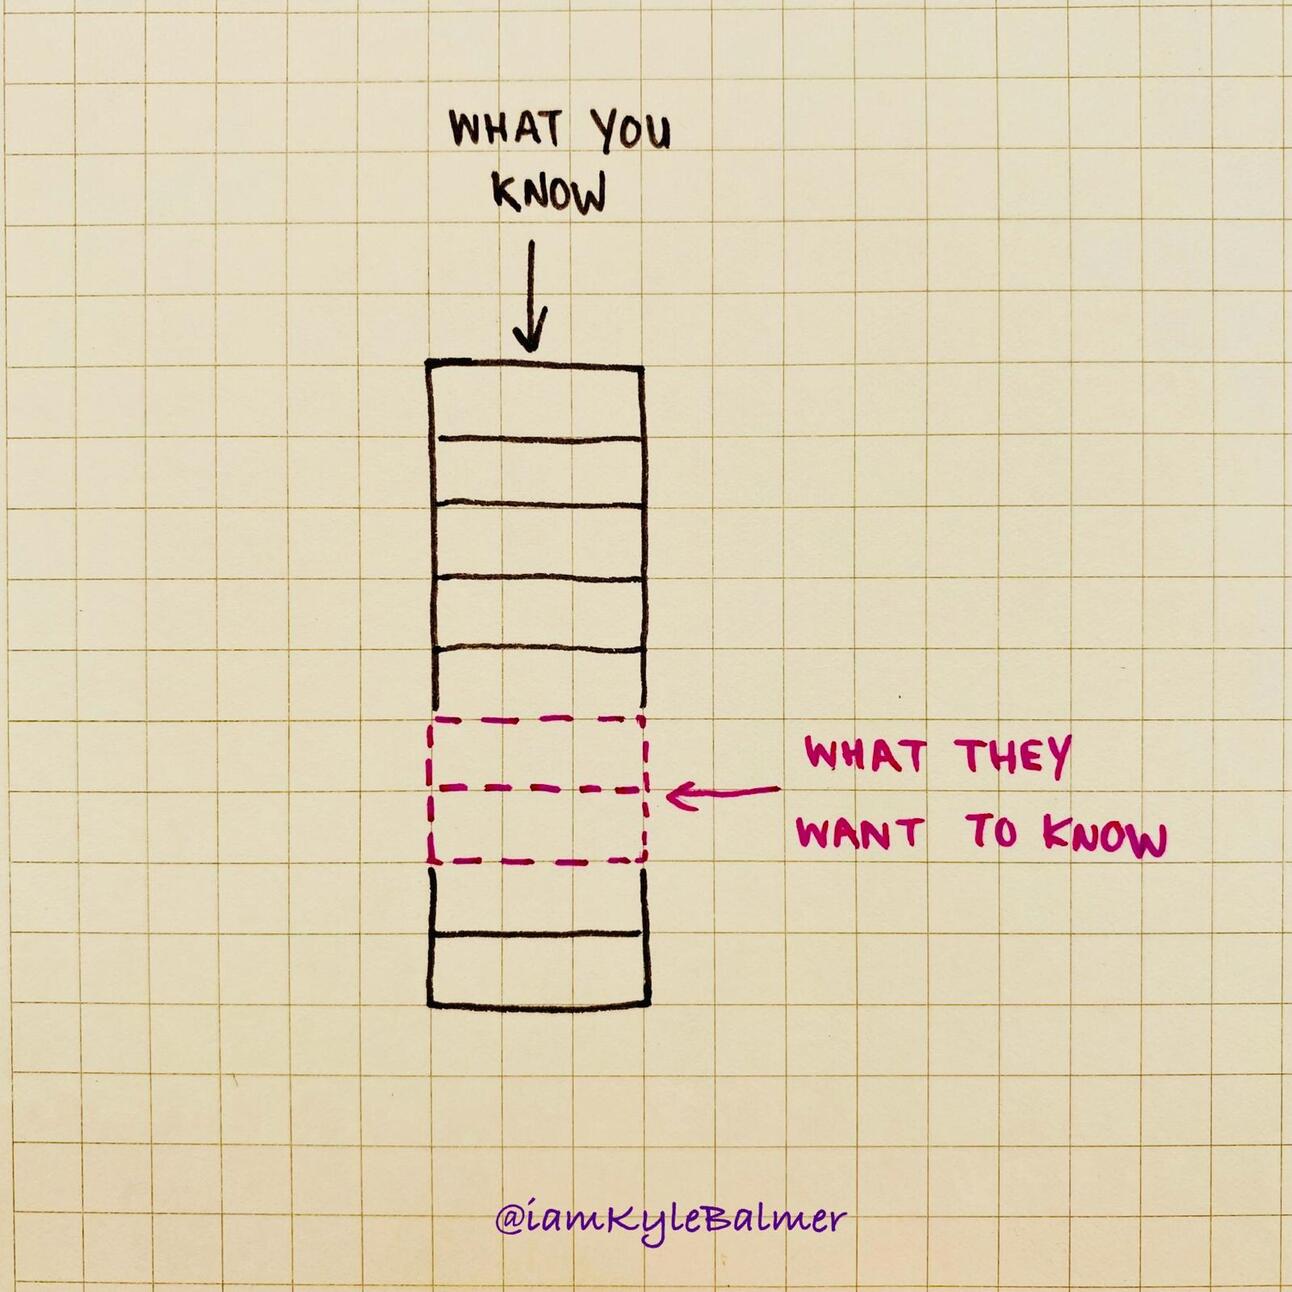 WHAT YOU
KNOW
WHAT THEY
WANT TO KNOW
@iamKyleBalmer